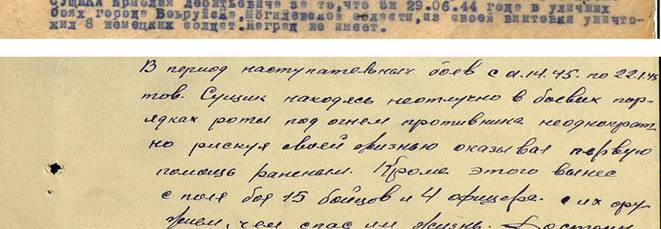 СУЩИКА Ермолая Леонтьевича за то, что он 29.06.44 года в уличных
боях города Бобруйска, Могилевской области, из своей винтовки уничто-
жил 8 немецких солдат. Наград не имеет.
В период наступательных боев с 14. 45. по 22.1.45
тов. Сущик находясь неотлучно в боевых пор-
ядках роты под огнем противника неоднократ
но рискуя своей жизнью оказывал первую
помощь раненым. Кроме этого вынес
с поля боя 15 бойцов и 4 офицера с их ору-
жием, чем спас им жизнь. Достоин